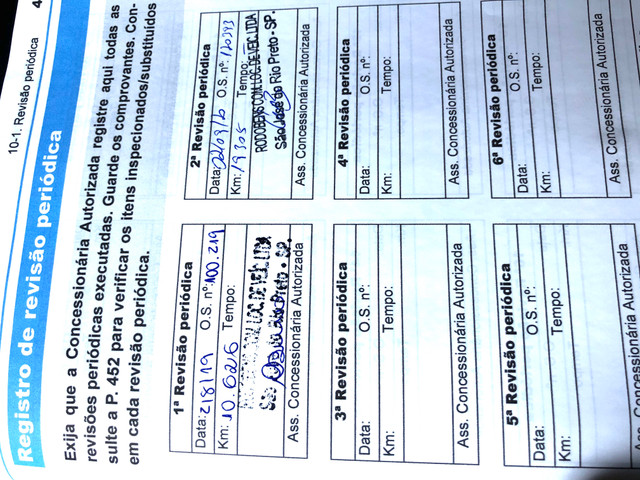 10-1. Revisão periódica
Registro de revisão periódica
Exija que a Concessionária Autorizada registre aqui todas as
revisões periódicas executadas. Guarde os comprovantes. Con-
sulte a P. 452 para verificar os itens inspecionados/substituídos
em cada revisão periódica.
1ª Revisão periódica
Data: 218/19 O.S. nº: 100.219
Km: 10.626 Tempo:
São Preto - SP.
Ass. Concessionária Autorizada
2ª Revisão periódica
Data: 22/09/20 O.S. nº: 120393
Km: 19305 Tempo:
RODOBENS COM. LOC. DE VEIC. LTDA
São José do Rio Preto - SP.
Ass. Concessionária Autorizada
3ª Revisão periódica
Data: O.S. nº:
Km: Tempo:
Ass. Concessionária Autorizada
4ª Revisão periódica
Data: O.S. nº:
Km: Tempo:
Ass. Concessionária Autorizada
5ª Revisão periódica
Data: O.S. nº:
Km: Tempo:
Ass. Concessionária Autorizada
6ª Revisão periódica
Data: O.S. nº:
Km: Tempo:
Ass. Concessionária Autorizada